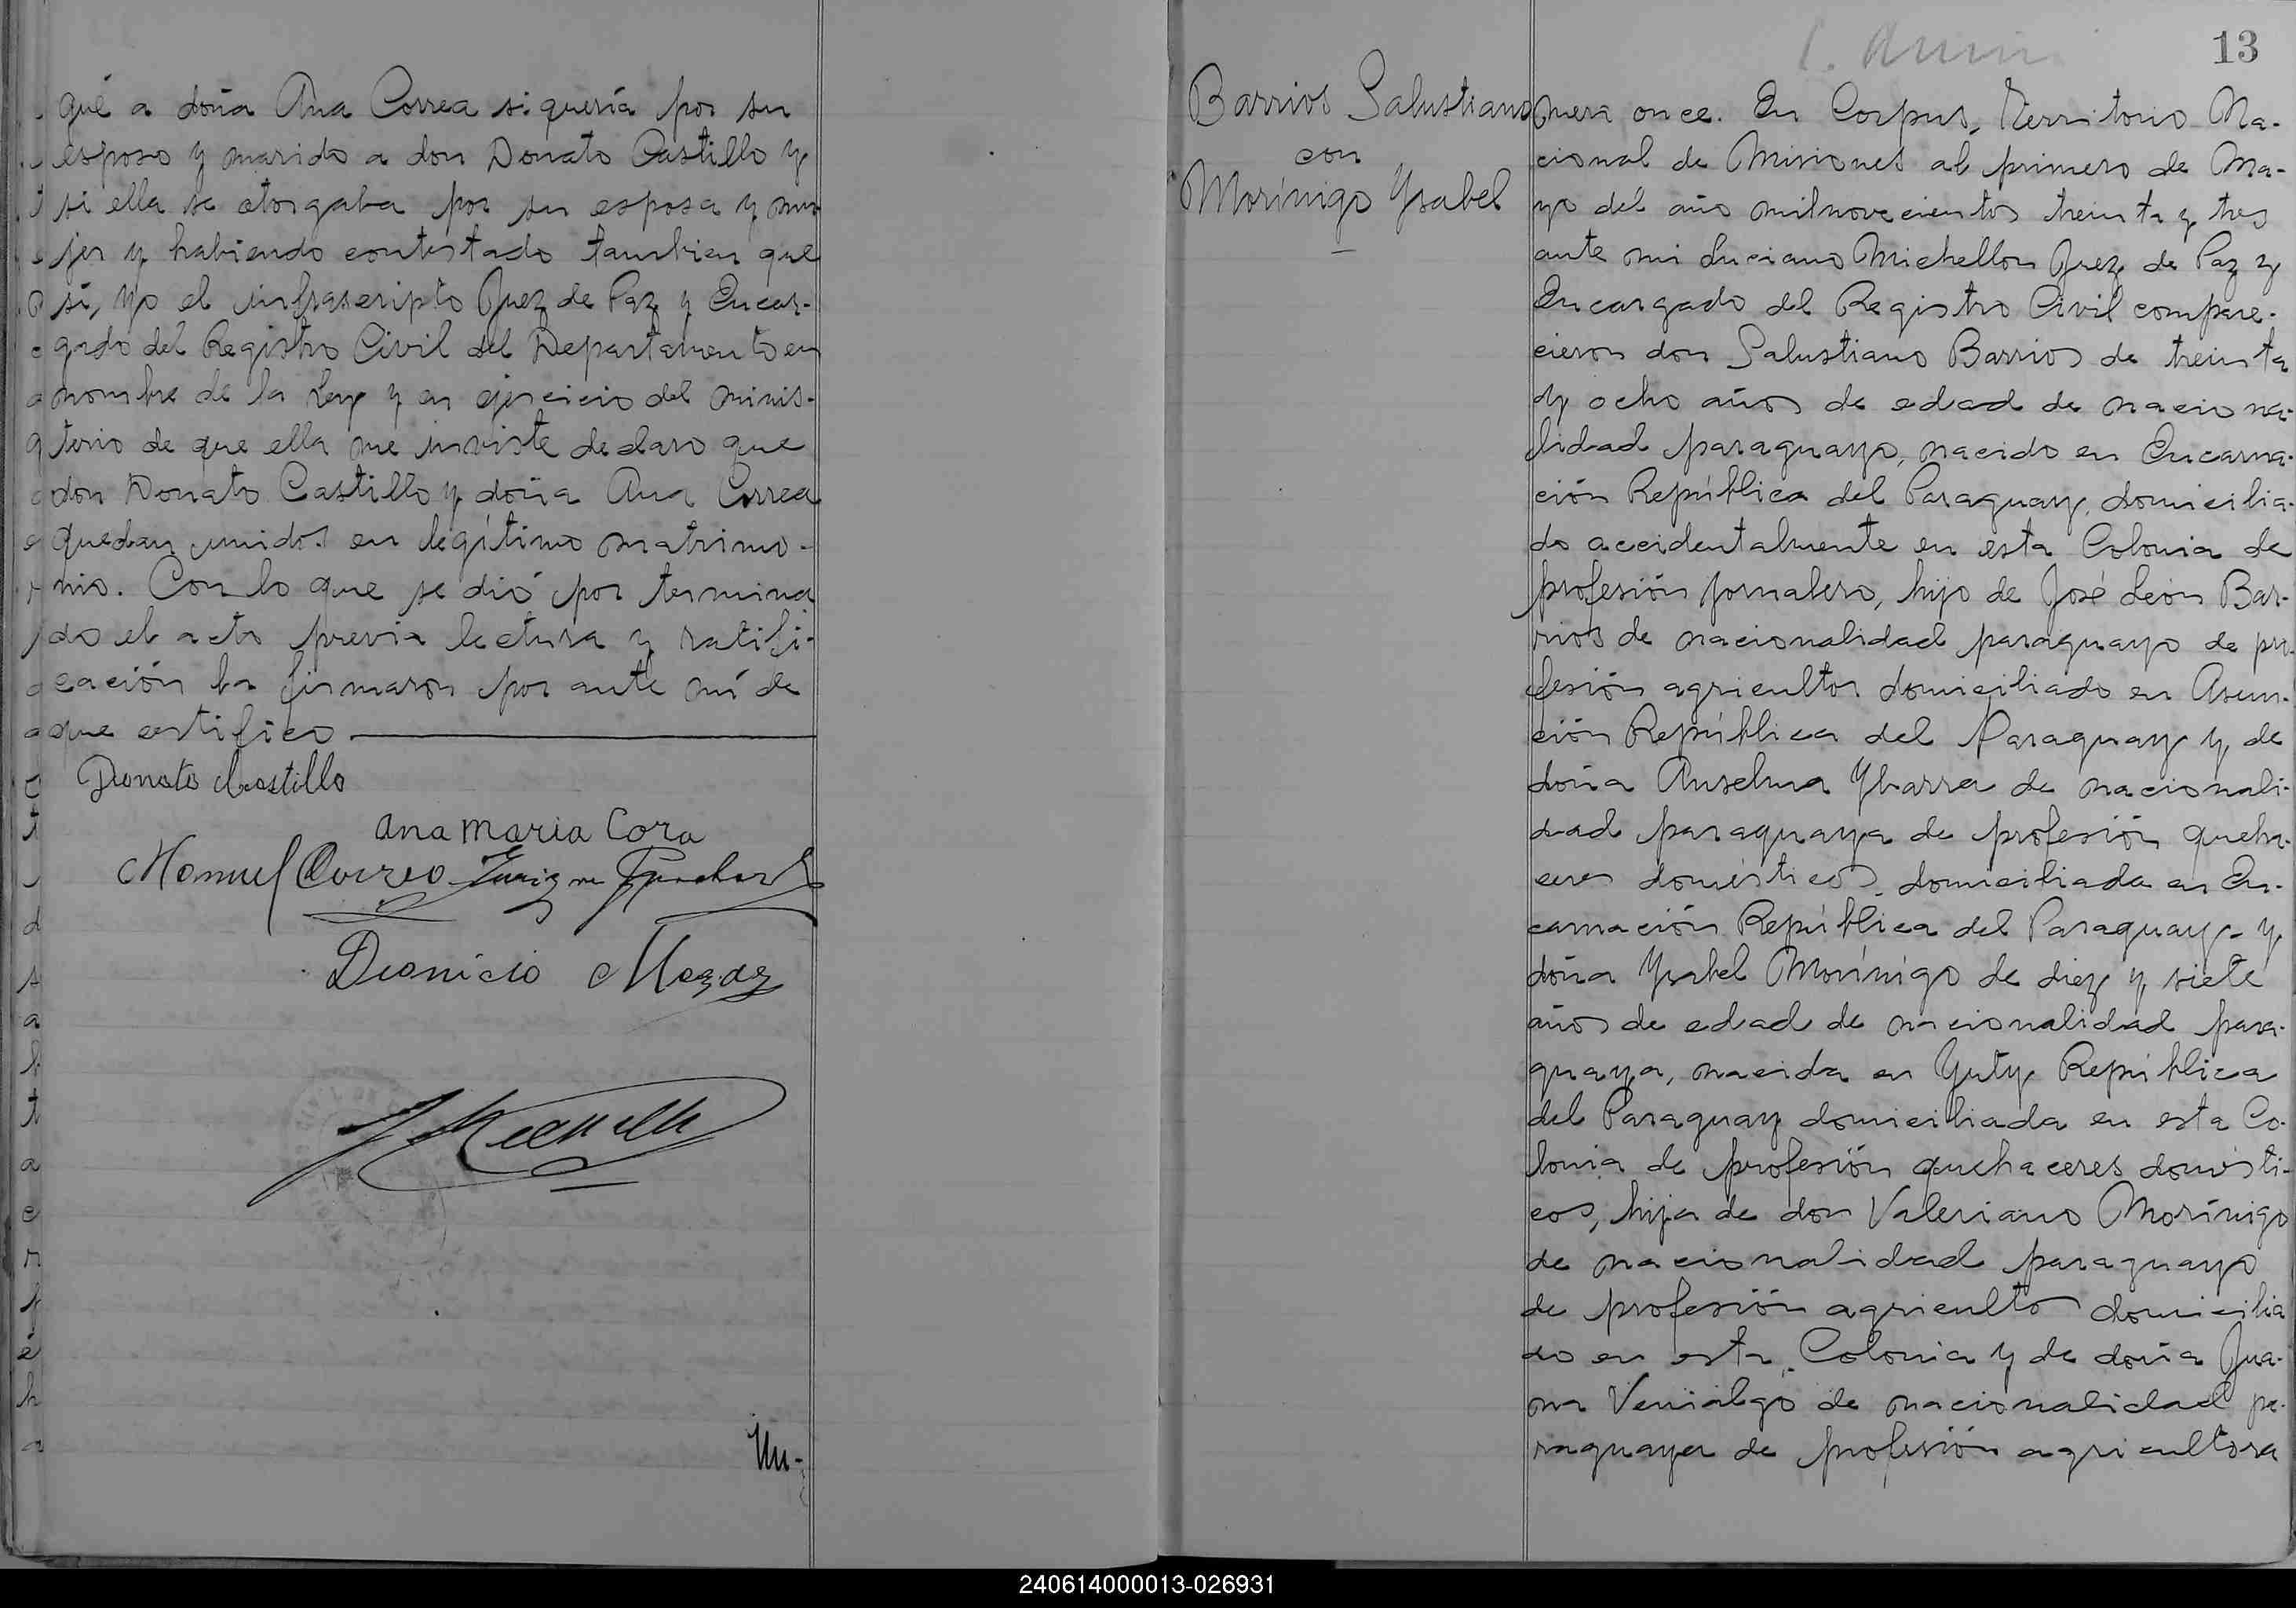 qué a doña Ana Correa si quería por su
esposo y marido a don Donato Castillo y
si ella se otorgaba por su esposa y mu-
jer y habiendo contestado tambien que
sí, yo el infrascripto Juez de Paz y Encar-
gado del Registro Civil del Departamento en
nombre de la Ley y en ejercicio del minis-
terio de que ella me inviste declaro que
don Donato Castillo y doña Ana Correa
quedan unidos en legítimo matrimo-
nio. Con lo que se dió por termina
do el acto previa lectura y ratifi-
cación la firmaron por ante mí de
que certifico
Donato Castillo
Ana Maria Cora
Manuel
Dionicio
Nu-
13
Barrios Salustiano
con
Morínigo Ysabel
mero once. En Corpus, Territorio Na-
cional de Misiones al primero de Ma-
yo del año milnovecientos treinta y tres
ante mi Luciano Michellon Juez de Paz y
Encargado del Registro Civil compare-
cieron don Salustiano Barrios de treinta
y ocho años de edad de naciona-
lidad paraguayo, nacido en Encarna-
ción República del Paraguay, domicilia-
do accidentalmente en esta Colonia de
profesión jornalero, hijo de José León Bar-
rios de nacionalidad paraguayo de pro
fesión agricultor domiciliado en Asun-
ción República del Paraguay y de
doña Anselma Ybarra de nacionali-
dad paraguaya de profesión queha-
ceres domésticos, domiciliada en En-
carnación República del Paraguay y
doña Ysabel Morínigo de diez y siete
años de edad de nacionalidad para-
guaya, nacida en Yuty República
del Paraguay domiciliada en esta Co-
lonia de profesión quehaceres domésti-
cos, hija de don Valeriano Morínigo
de nacionalidad paraguayo
de profesión agricultor domicilia
do en esta Colonia y de doña Jua-
na Venialgo de nacionalidad pa-
raguaya de profesión agricultora
240614000013-026931